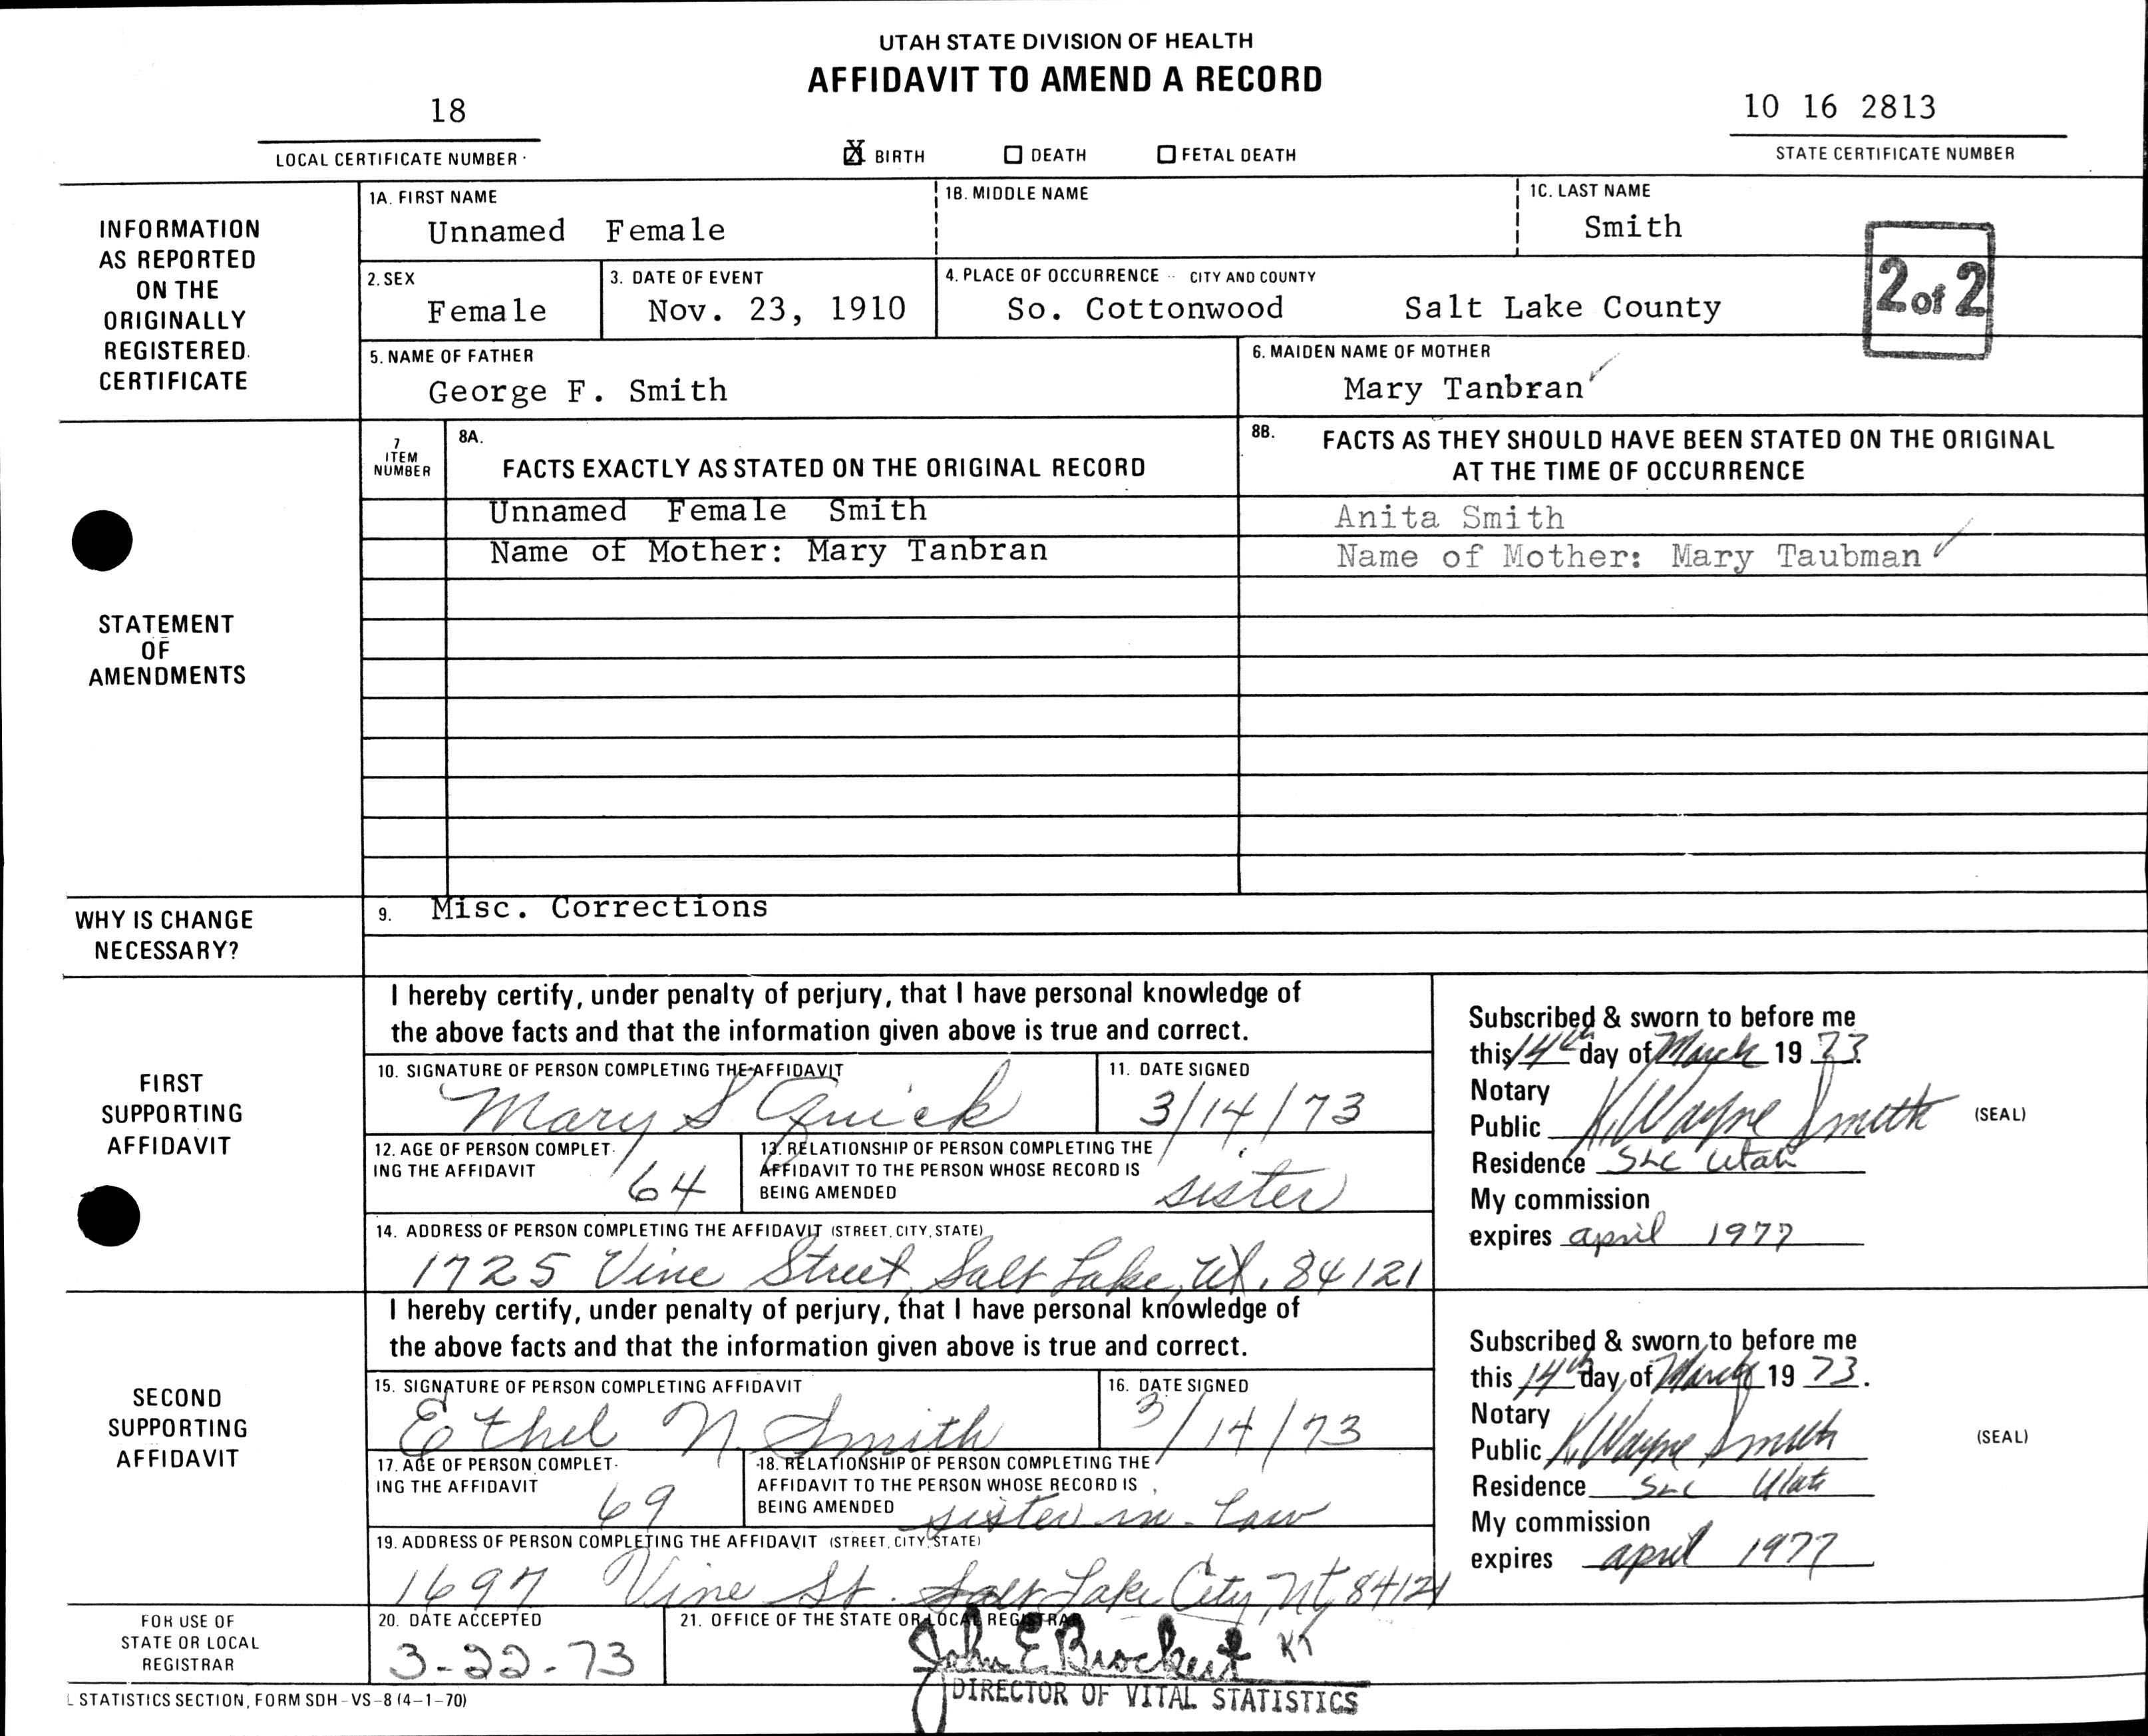 UTAH STATE DIVISION OF HEALTH
AFFIDAVIT TO AMEND A RECORD
18
LOCAL CERTIFICATE NUMBER
X BIRTH DEATH FETAL DEATH
10 16 2813
STATE CERTIFICATE NUMBER
INFORMATION
AS REPORTED
ON THE
ORIGINALLY
REGISTERED
CERTIFICATE
1A. FIRST NAME
Unnamed Female
1B. MIDDLE NAME
1C. LAST NAME
Smith
2. SEX
Female
3. DATE OF EVENT
Nov. 23, 1910
4. PLACE OF OCCURRENCE - CITY AND COUNTY
So. Cottonwood Salt Lake County
2 of 2
5. NAME OF FATHER
George F. Smith
6. MAIDEN NAME OF MOTHER
Mary Tanbran ✓
STATEMENT
OF
AMENDMENTS
7
ITEM
NUMBER
8A.
FACTS EXACTLY AS STATED ON THE ORIGINAL RECORD
8B. FACTS AS THEY SHOULD HAVE BEEN STATED ON THE ORIGINAL
AT THE TIME OF OCCURRENCE
Unnamed Female Smith
Anita Smith
Name of Mother: Mary Tanbran
Name of Mother: Mary Taubman ✓
WHY IS CHANGE
NECESSARY?
9. Misc. Corrections
FIRST
SUPPORTING
AFFIDAVIT
I hereby certify, under penalty of perjury, that I have personal knowledge of
the above facts and that the information given above is true and correct.
10. SIGNATURE OF PERSON COMPLETING THE AFFIDAVIT
Mary S Quick
11. DATE SIGNED
3/14/73
12. AGE OF PERSON COMPLET-
ING THE AFFIDAVIT
64
13. RELATIONSHIP OF PERSON COMPLETING THE
AFFIDAVIT TO THE PERSON WHOSE RECORD IS
BEING AMENDED
sister
14. ADDRESS OF PERSON COMPLETING THE AFFIDAVIT (STREET, CITY, STATE)
1725 Vine Street, Salt Lake, Ut. 84121
Subscribed & sworn to before me
this 14th day of March 19 73.
Notary
Public K. Wayne Smith (SEAL)
Residence SLC Utah
My commission
expires april 1977
SECOND
SUPPORTING
AFFIDAVIT
I hereby certify, under penalty of perjury, that I have personal knowledge of
the above facts and that the information given above is true and correct.
15. SIGNATURE OF PERSON COMPLETING AFFIDAVIT
Ethel N. Smith
16. DATE SIGNED
3/14/73
17. AGE OF PERSON COMPLET-
ING THE AFFIDAVIT
69
18. RELATIONSHIP OF PERSON COMPLETING THE
AFFIDAVIT TO THE PERSON WHOSE RECORD IS
BEING AMENDED
sister in-law
19. ADDRESS OF PERSON COMPLETING THE AFFIDAVIT (STREET, CITY, STATE)
1697 Vine St. Salt Lake City, Ut 84121
Subscribed & sworn to before me
this 14th day of March 19 73.
Notary
Public K. Wayne Smith (SEAL)
Residence SLC Utah
My commission
expires april 1977
FOR USE OF
STATE OR LOCAL
REGISTRAR
20. DATE ACCEPTED
3-22-73
21. OFFICE OF THE STATE OR LOCAL REGISTRAR
John E. Brockert KT
DIRECTOR OF VITAL STATISTICS
L STATISTICS SECTION, FORM SDH-VS-8 (4-1-70)